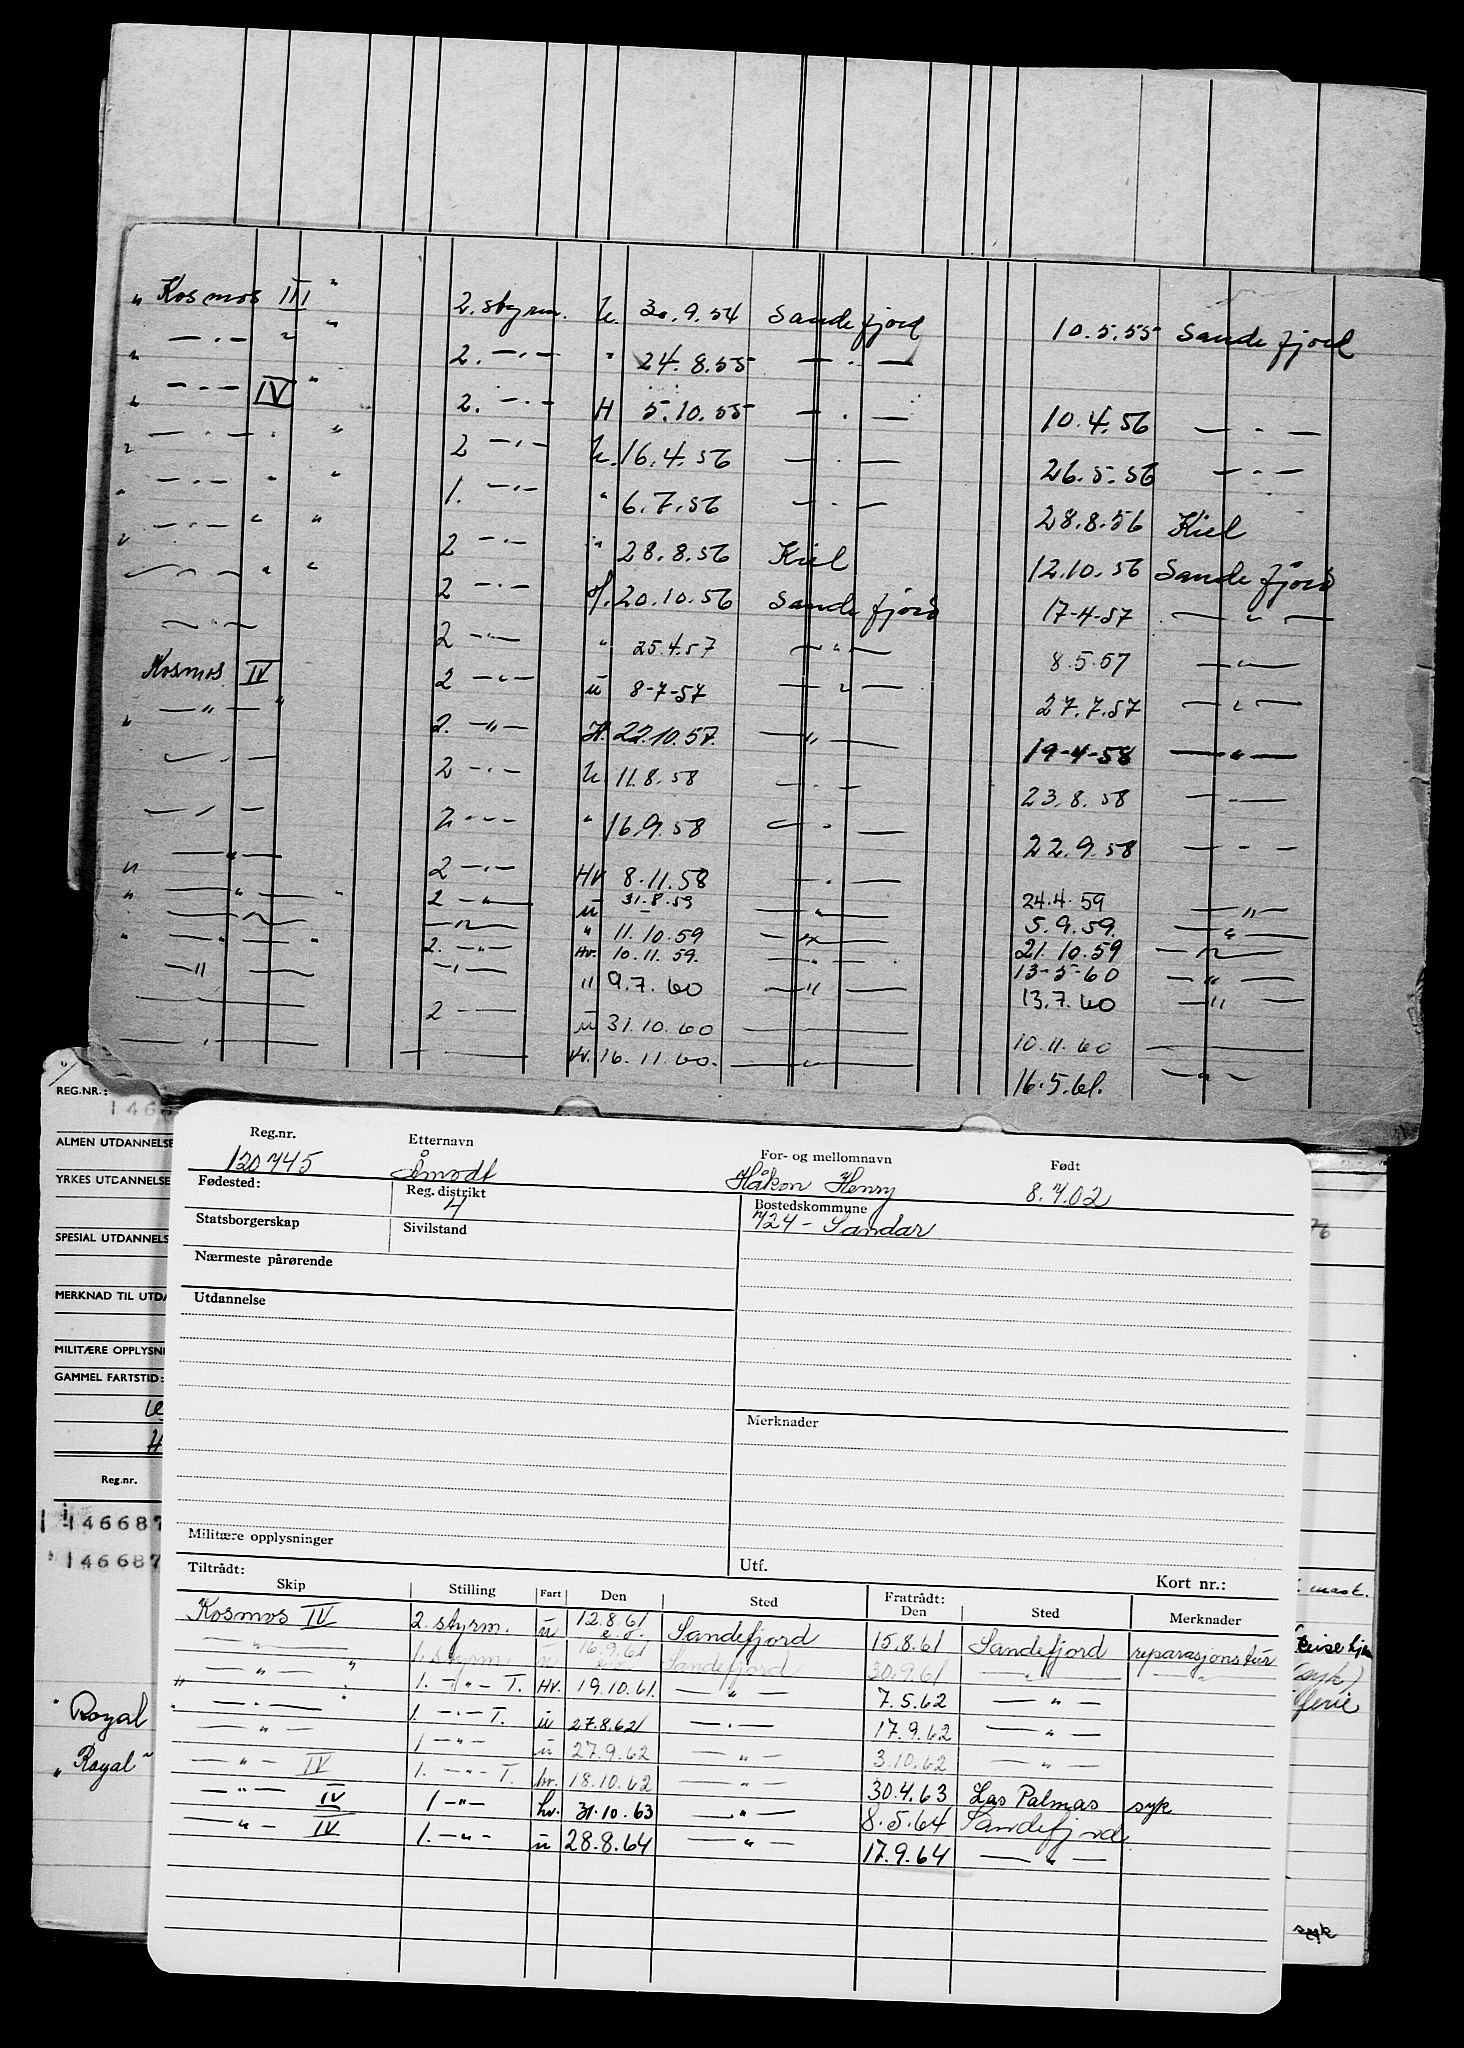 " Kosmos III " 2. styrm. U. 30.9.54 Sandefjord 10.5.55 Sandefjord
" — . — " " 2. — . — " 24.8.55 — . —
" — . — IV " 2. — . — H 5.10.55 — . — 10.4.56 — . —
" — . — . " 2 — . — U. 16.4.56 — . — 26.5.56 — . —
" — . — " " 1. — . — " 6.7.56 — . — 28.8.56 Kiel
" — . — " " 2 — . — " 28.8.56 Kiel 12.10.56 Sandefjord
— . — " " 2 — . — 20.10.56 Sandefjord 17-4-57 — " —
— . — 2 — . — " 25.4.57 — " — 8.5.57 — " —
Kosmos IV 2 — . — u 8-7-57 — " — 27.7.57 — " —
" — " — " 2. — " — H. 22.10.57. — " — 19-4-58 — " —
— . — 2 — . — U. 11.8.58 — . — 23.8.58 — . —
— . — 2 — . — " 16.9.58 — . — 22.9.58 — . —
" — " — 2 — . — Hv 8.11.58 — . — 24.4.59 — " —
" — " — " 2 — " — u 31.8.59 — " — 5.9.59. — " —
— " — — " — " 11.10.59 — " — 21.10.59 — " —
" — " — " 2. — " — Hv. 10.11.59. — " — 13-5-60 — " —
— " — — . — " 9.7.60 — " — 13.7.60 — " —
— — 2 — — u 31.10.60 — — 10.11.60 — —
— . — — — Hv. 16.11.60. — " — 16.5.61. — " —
REG.NR.:
ALMEN UTDANNELSE
YRKES UTDANNELSE
SPESIAL UTDANNELS
MERKNAD TIL UTDA
MILITÆRE OPPLYSNI
GAMMEL FARTSTID:
H
Reg.nr.
146687
146687
" Royal
" Royal "
Reg.nr. Etternavn For- og mellomnavn Født
120745 Åmodt Håkon Henry 8.7.02
Fødested: Reg. distrikt Bostedskommune
4 724 - Sandar
Statsborgerskap Sivilstand
Nærmeste pårørende
Utdannelse
Merknader
Militære opplysninger
Utf.
Tiltrådt: Kort nr.:
Skip Stilling Fart Den Sted Fratrådt: Den Sted Merknader
Kosmos IV 2. styrm. u 12.8.61 e.o. Sandefjord 15.8.61 Sandefjord reparasjonstur
— " — 1. styrm. u 16.9.61 e.o. Sandefjord 30.9.61 — " — — " —
" — " — " 1. — " — T. Hv. 19.10.61 — " — 7.5.62 — " —
" — . — " 1. — . — T. u 27.8.62 — . — 17.9.62 — " —
— " — 1 — " — u 27.9.62 — " — 3.10.62 — " —
— " — IV 1. — " — T. hv. 18.10.62 — " — 30.4.63 Las Palmas syk
— " — IV 1 — " — hv. 31.10.63 — " — 8.5.64 Sandefjord
— " — IV 1. — " — u 28.8.64 — " — 17.9.64 — " —
76
mask.
(syk)
ferie
syk